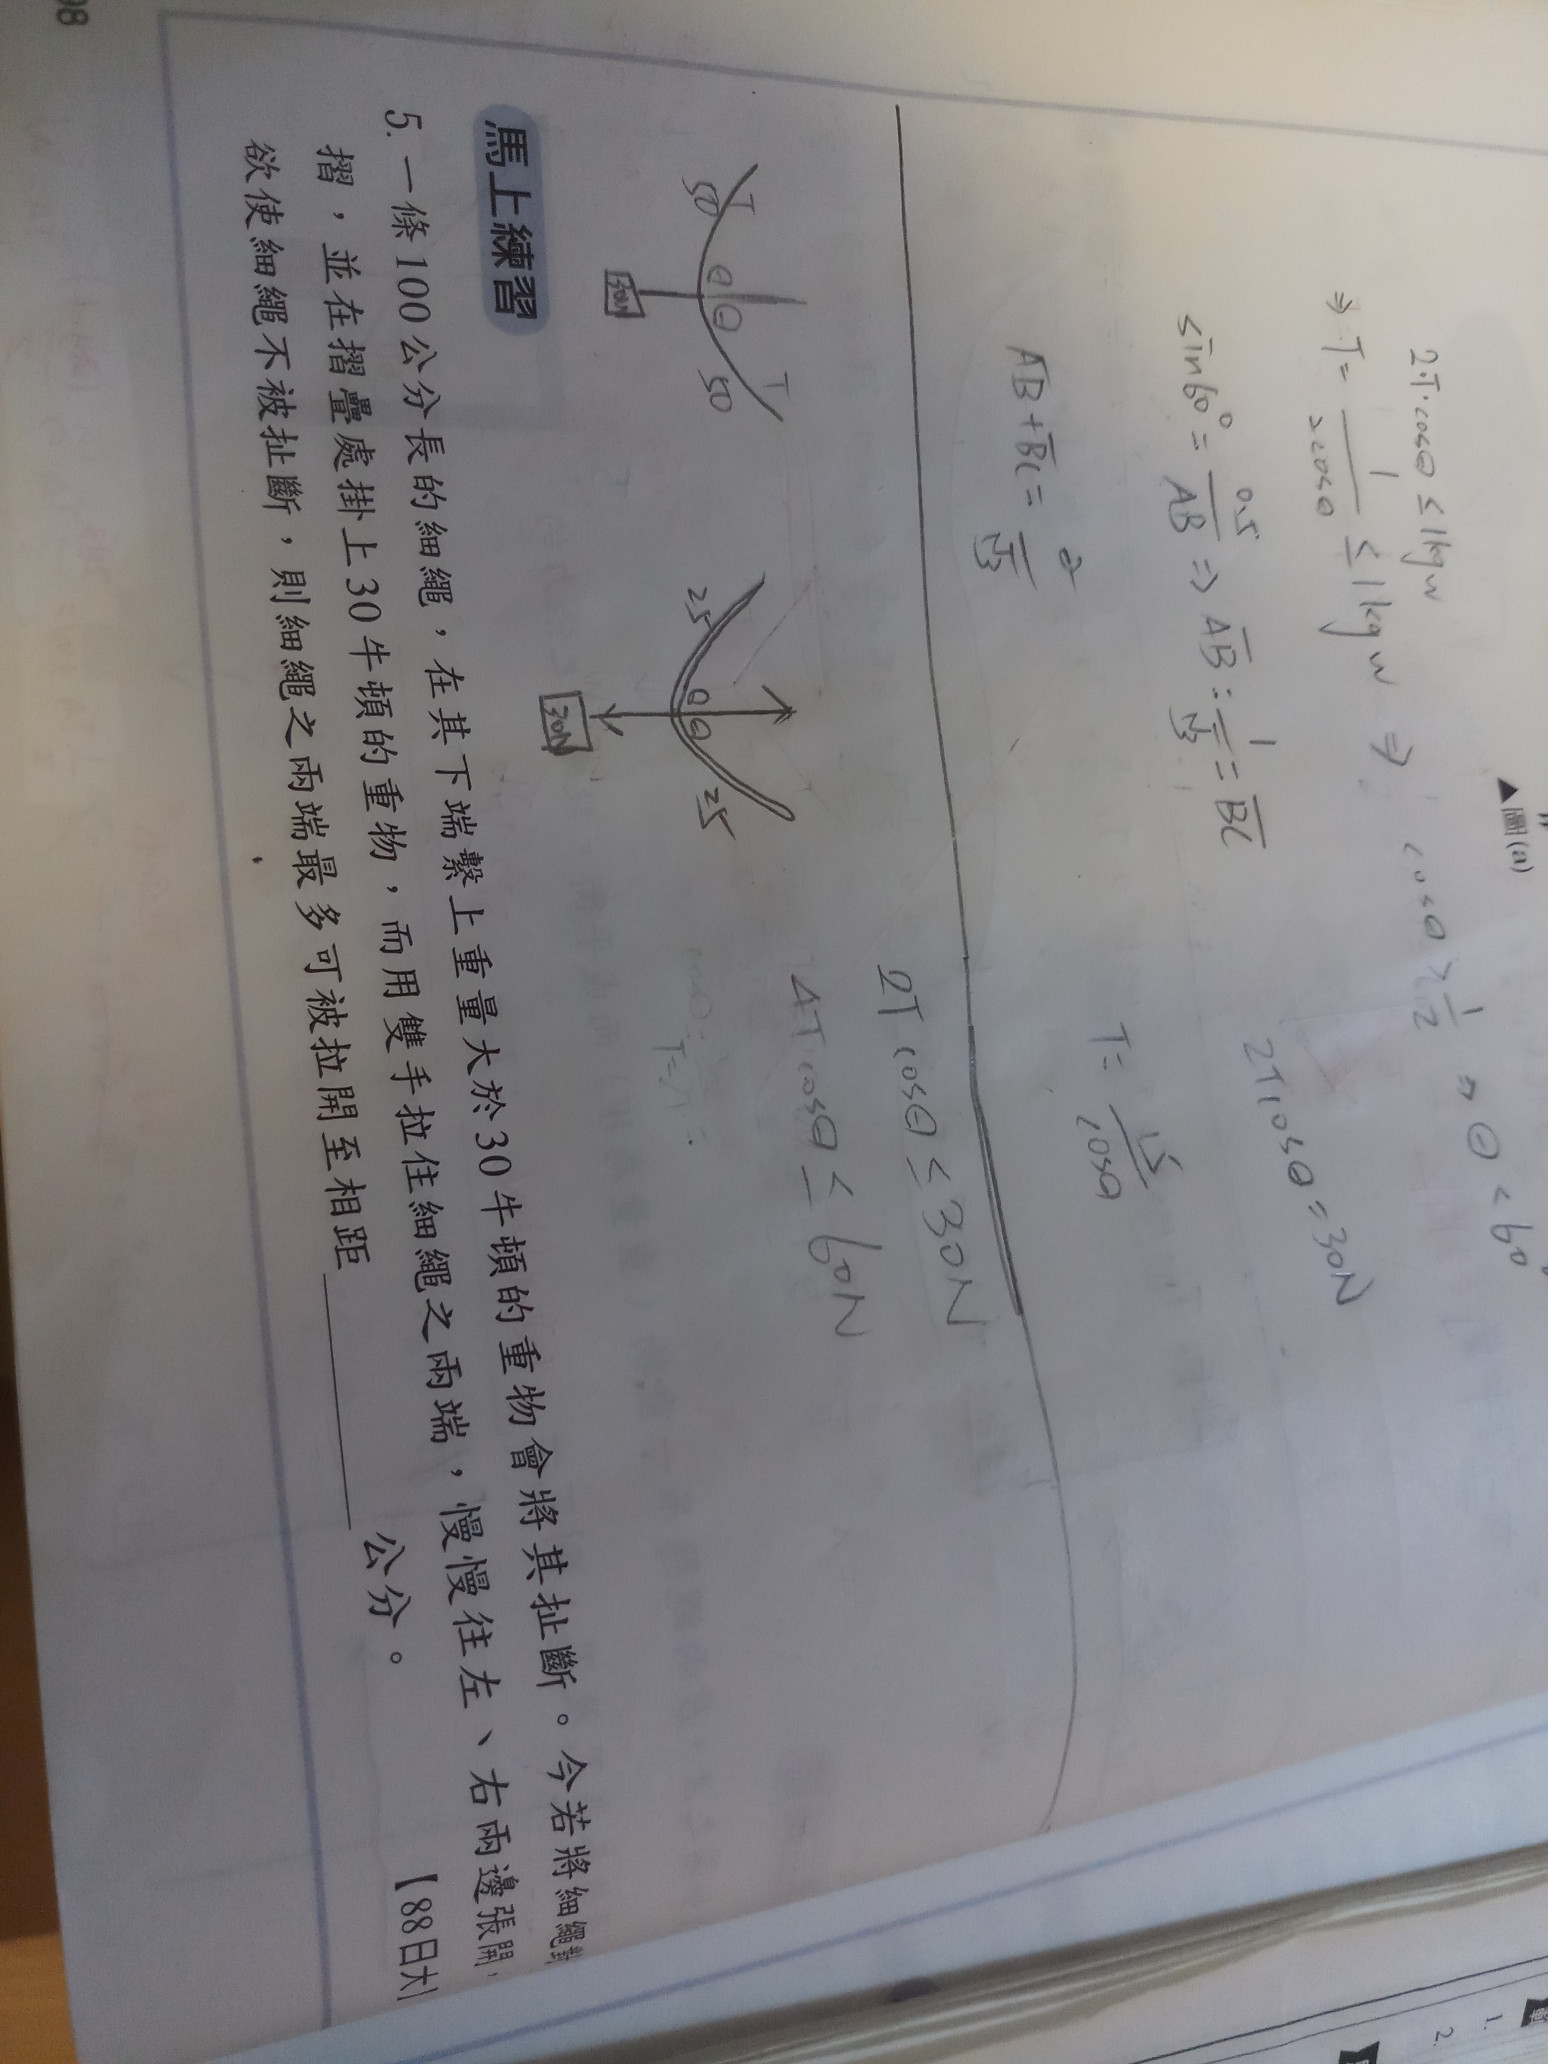 ▲圖(a)
2·T·cosθ ≤ 1kgw
⇒ T = 1/2cosθ ≤ 1kgw ⇒ cosθ ≥ 1/2 ⇒ θ < 60°
sin60° = 0.5/AB ⇒ AB : 1/√3 = BC
2Tcosθ = 30N
AB + BC = 2/√3
T = 15/cosθ
2T cosθ ≤ 30N
4T cosθ ≤ 60N
T
50
θ
θ
T
50
30N
25
θ
θ
25
30N
馬上練習
5. 一條100公分長的細繩，在其下端繫上重量大於30牛頓的重物會將其扯斷。今若將細繩對
摺，並在摺疊處掛上30牛頓的重物，而用雙手拉住細繩之兩端，慢慢往左、右兩邊張開，
欲使細繩不被扯斷，則細繩之兩端最多可被拉開至相距＿＿＿＿公分。 【88日大】
98
1.
2.